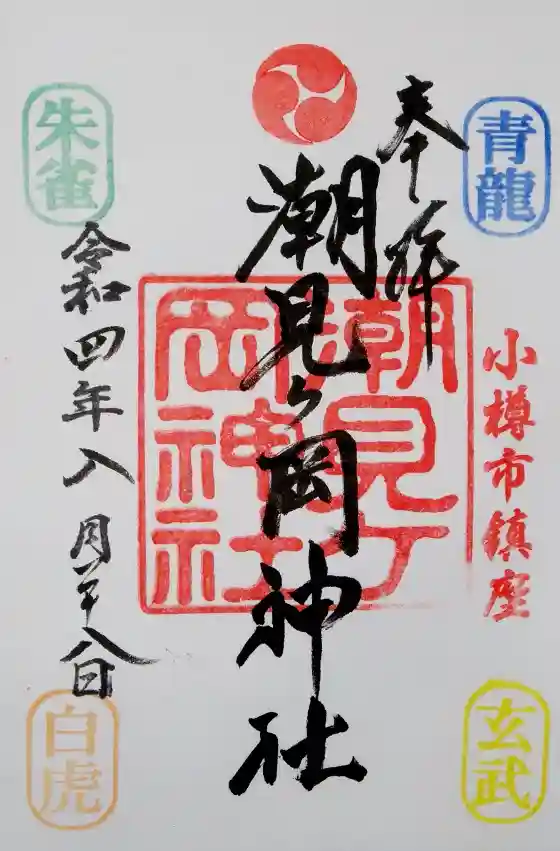 青龍
奉拝
小樽市鎮座
玄武
潮見ヶ岡神社
潮見ヶ岡神社
朱雀
令和四年八月二十八日
白虎